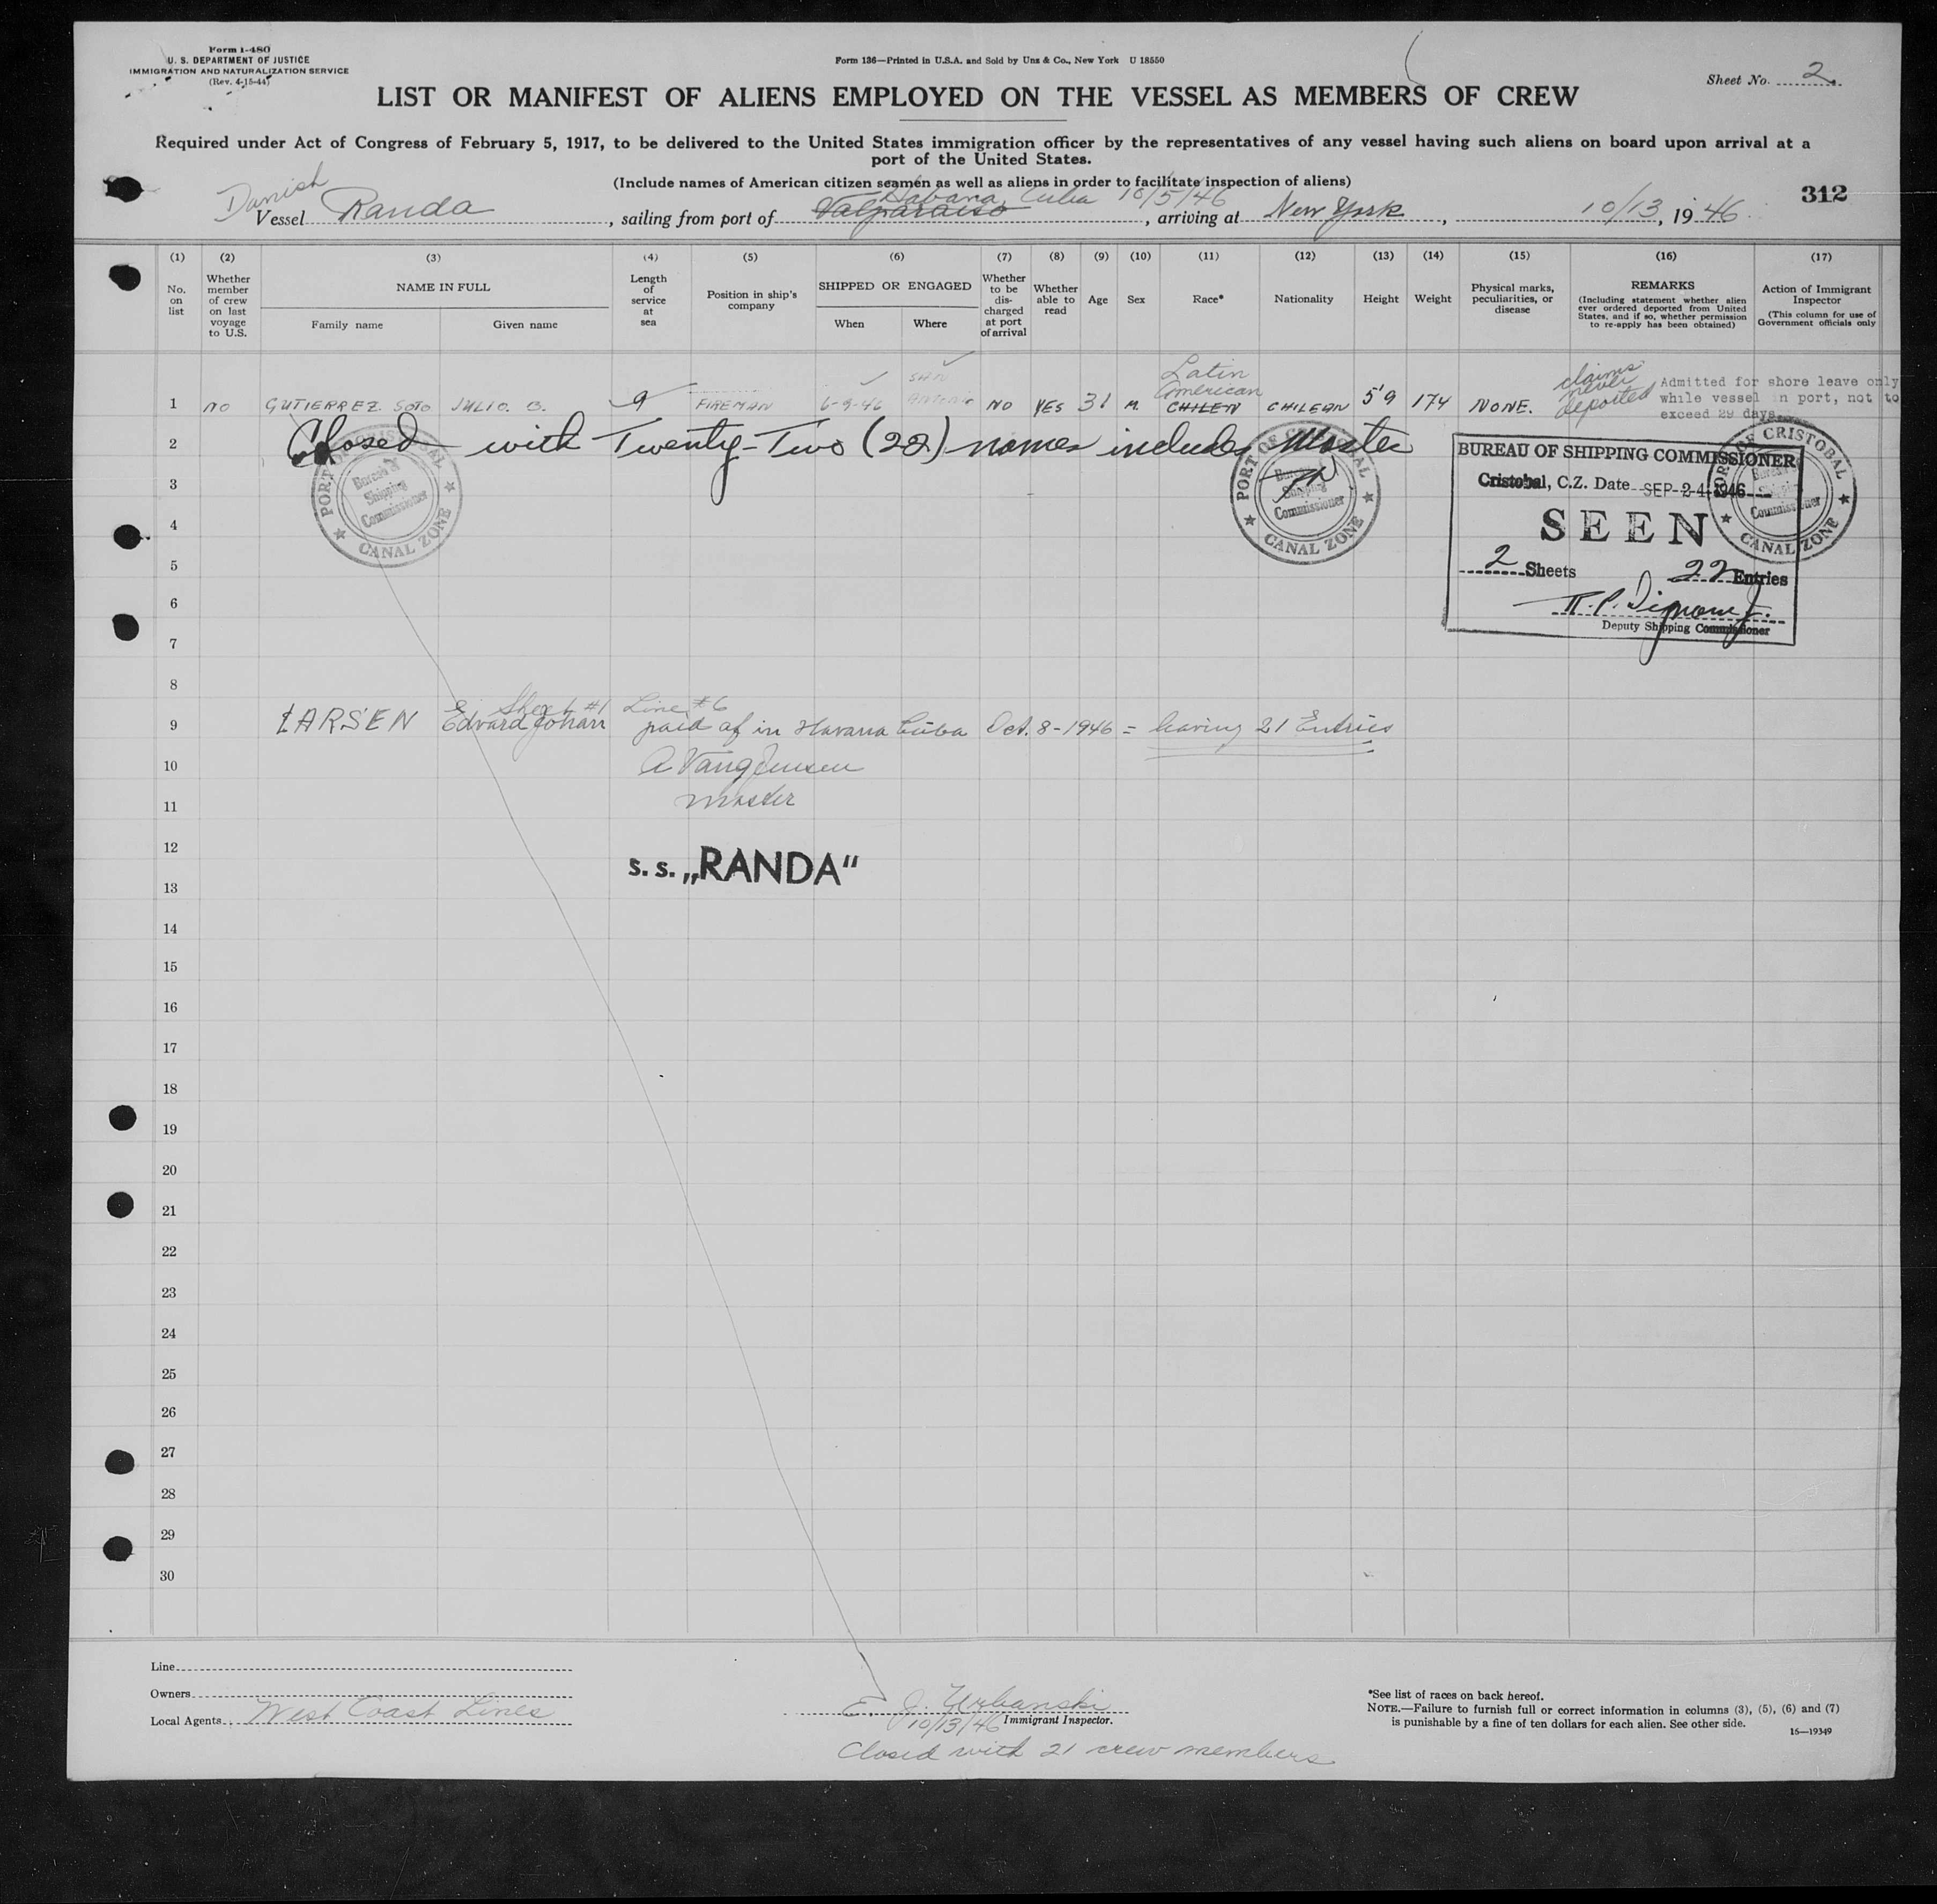 Form I-480
U. S. DEPARTMENT OF JUSTICE
IMMIGRATION AND NATURALIZATION SERVICE
(Rev. 4-15-44)
Form 136—Printed in U.S.A. and Sold by Unz & Co., New York U 18550
Sheet No. 2
LIST OR MANIFEST OF ALIENS EMPLOYED ON THE VESSEL AS MEMBERS OF CREW
Required under Act of Congress of February 5, 1917, to be delivered to the United States immigration officer by the representatives of any vessel having such aliens on board upon arrival at a
port of the United States.
(Include names of American citizen seamen as well as aliens in order to facilitate inspection of aliens)
312
Danish
Habana, Cuba 10/5/46
Vessel Randa, sailing from port of Valparaiso, arriving at New York, 10/13, 1946
(1) (2) (3) (4) (5) (6) (7) (8) (9) (10) (11) (12) (13) (14) (15) (16) (17)
No. on list
Whether member of crew on last voyage to U.S.
NAME IN FULL
Family name
Given name
Length of service at sea
Position in ship's company
SHIPPED OR ENGAGED
When
Where
Whether to be discharged at port of arrival
Whether able to read
Age
Sex
Race*
Nationality
Height
Weight
Physical marks, peculiarities, or disease
REMARKS
(Including statement whether alien ever ordered deported from United States, and if so, whether permission to re-apply has been obtained)
Action of Immigrant Inspector
(This column for use of Government officials only
1 NO GUTIERREZ SOTO JULIO. B. 9 FIREMAN 6-9-46 SAN ANTONIO NO YES 31 M. Latin American CHILEN CHILEAN 5'9 174 NONE. claims never deported
Admitted for shore leave only
while vessel in port, not to
exceed 29 days
2 Closed with Twenty-Two (22) names includes Master
PORT OF CRISTOBAL
Bureau of
Shipping
Commissioner
CANAL ZONE
PORT OF CRISTOBAL
Bureau of
Shipping
Commissioner
CANAL ZONE
PORT OF CRISTOBAL
Commissioner
CANAL ZONE
BUREAU OF SHIPPING COMMISSIONER
Cristobal, C.Z. Date SEP-24-1946
SEEN
2 Sheets 22 Entries
Deputy Shipping Commissioner
3
4
5
6
7
8
Sheet #1 Line #6
9 LARSEN Edvard Johan paid of in Havana Cuba Oct. 8-1946 = leaving 21 Entries
10 A Vang Jensen
11 master
12
s. s. „RANDA“
13
14
15
16
17
18
19
20
21
22
23
24
25
26
27
28
29
30
Line
Owners
Local Agents West Coast Lines
E. J. Urbanski
10/13/46 Immigrant Inspector.
Closed with 21 crew members
*See list of races on back hereof.
NOTE.—Failure to furnish full or correct information in columns (3), (5), (6) and (7)
is punishable by a fine of ten dollars for each alien. See other side.
16—19349